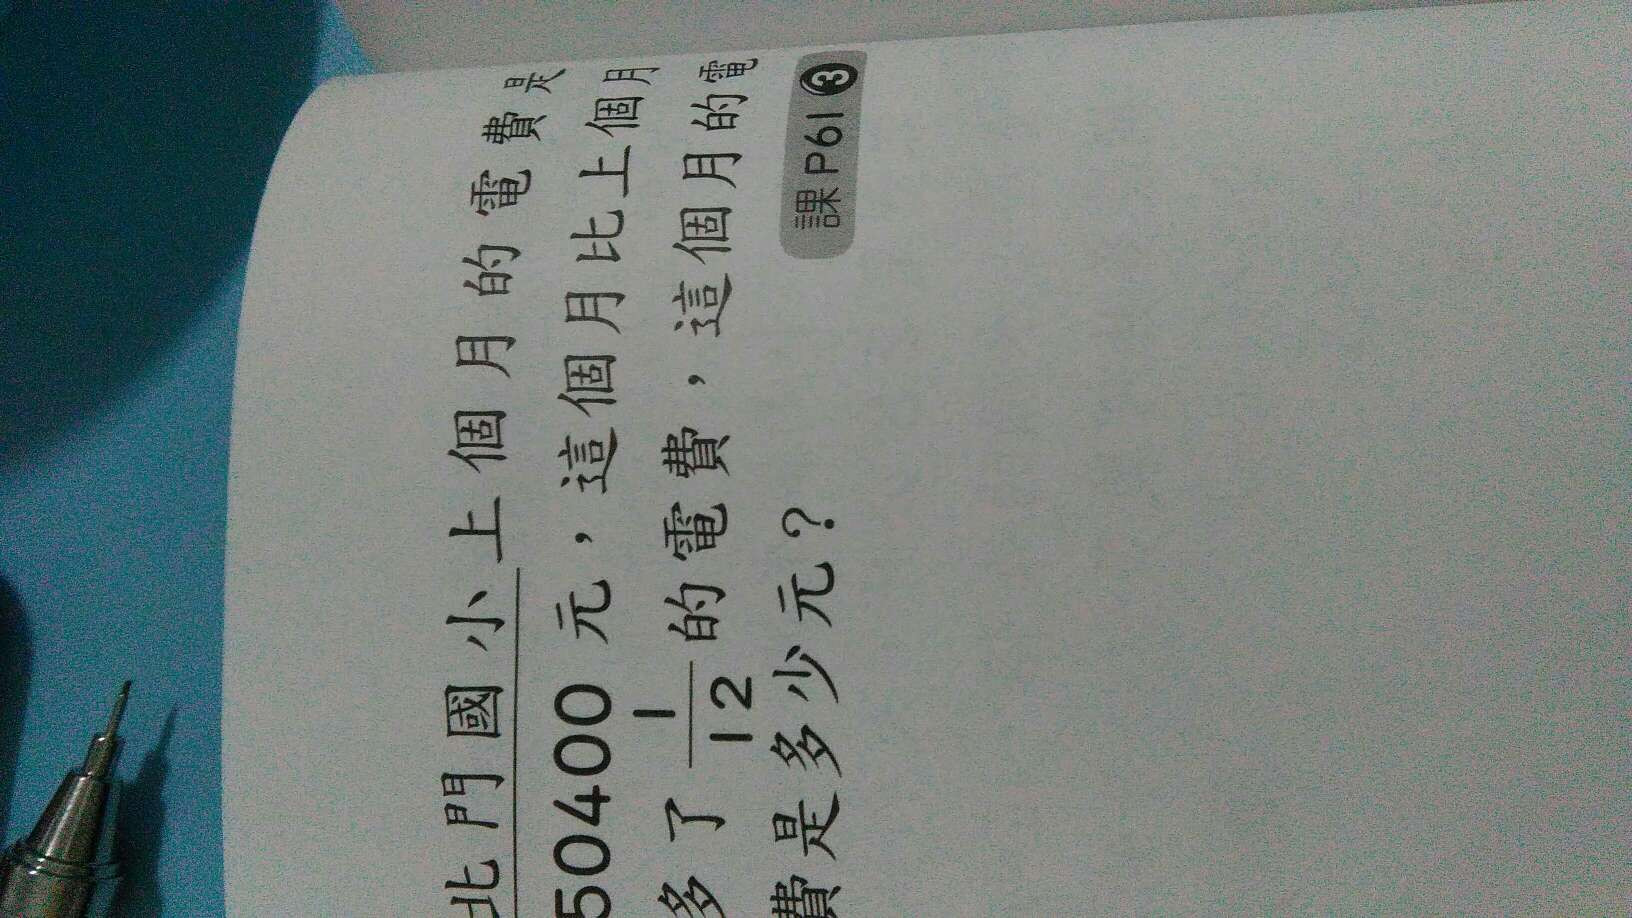 北門國小上個月的電費是
50400元，這個月比上個月
多了1/12的電費，這個月的電
費是多少元？
課P61 ③